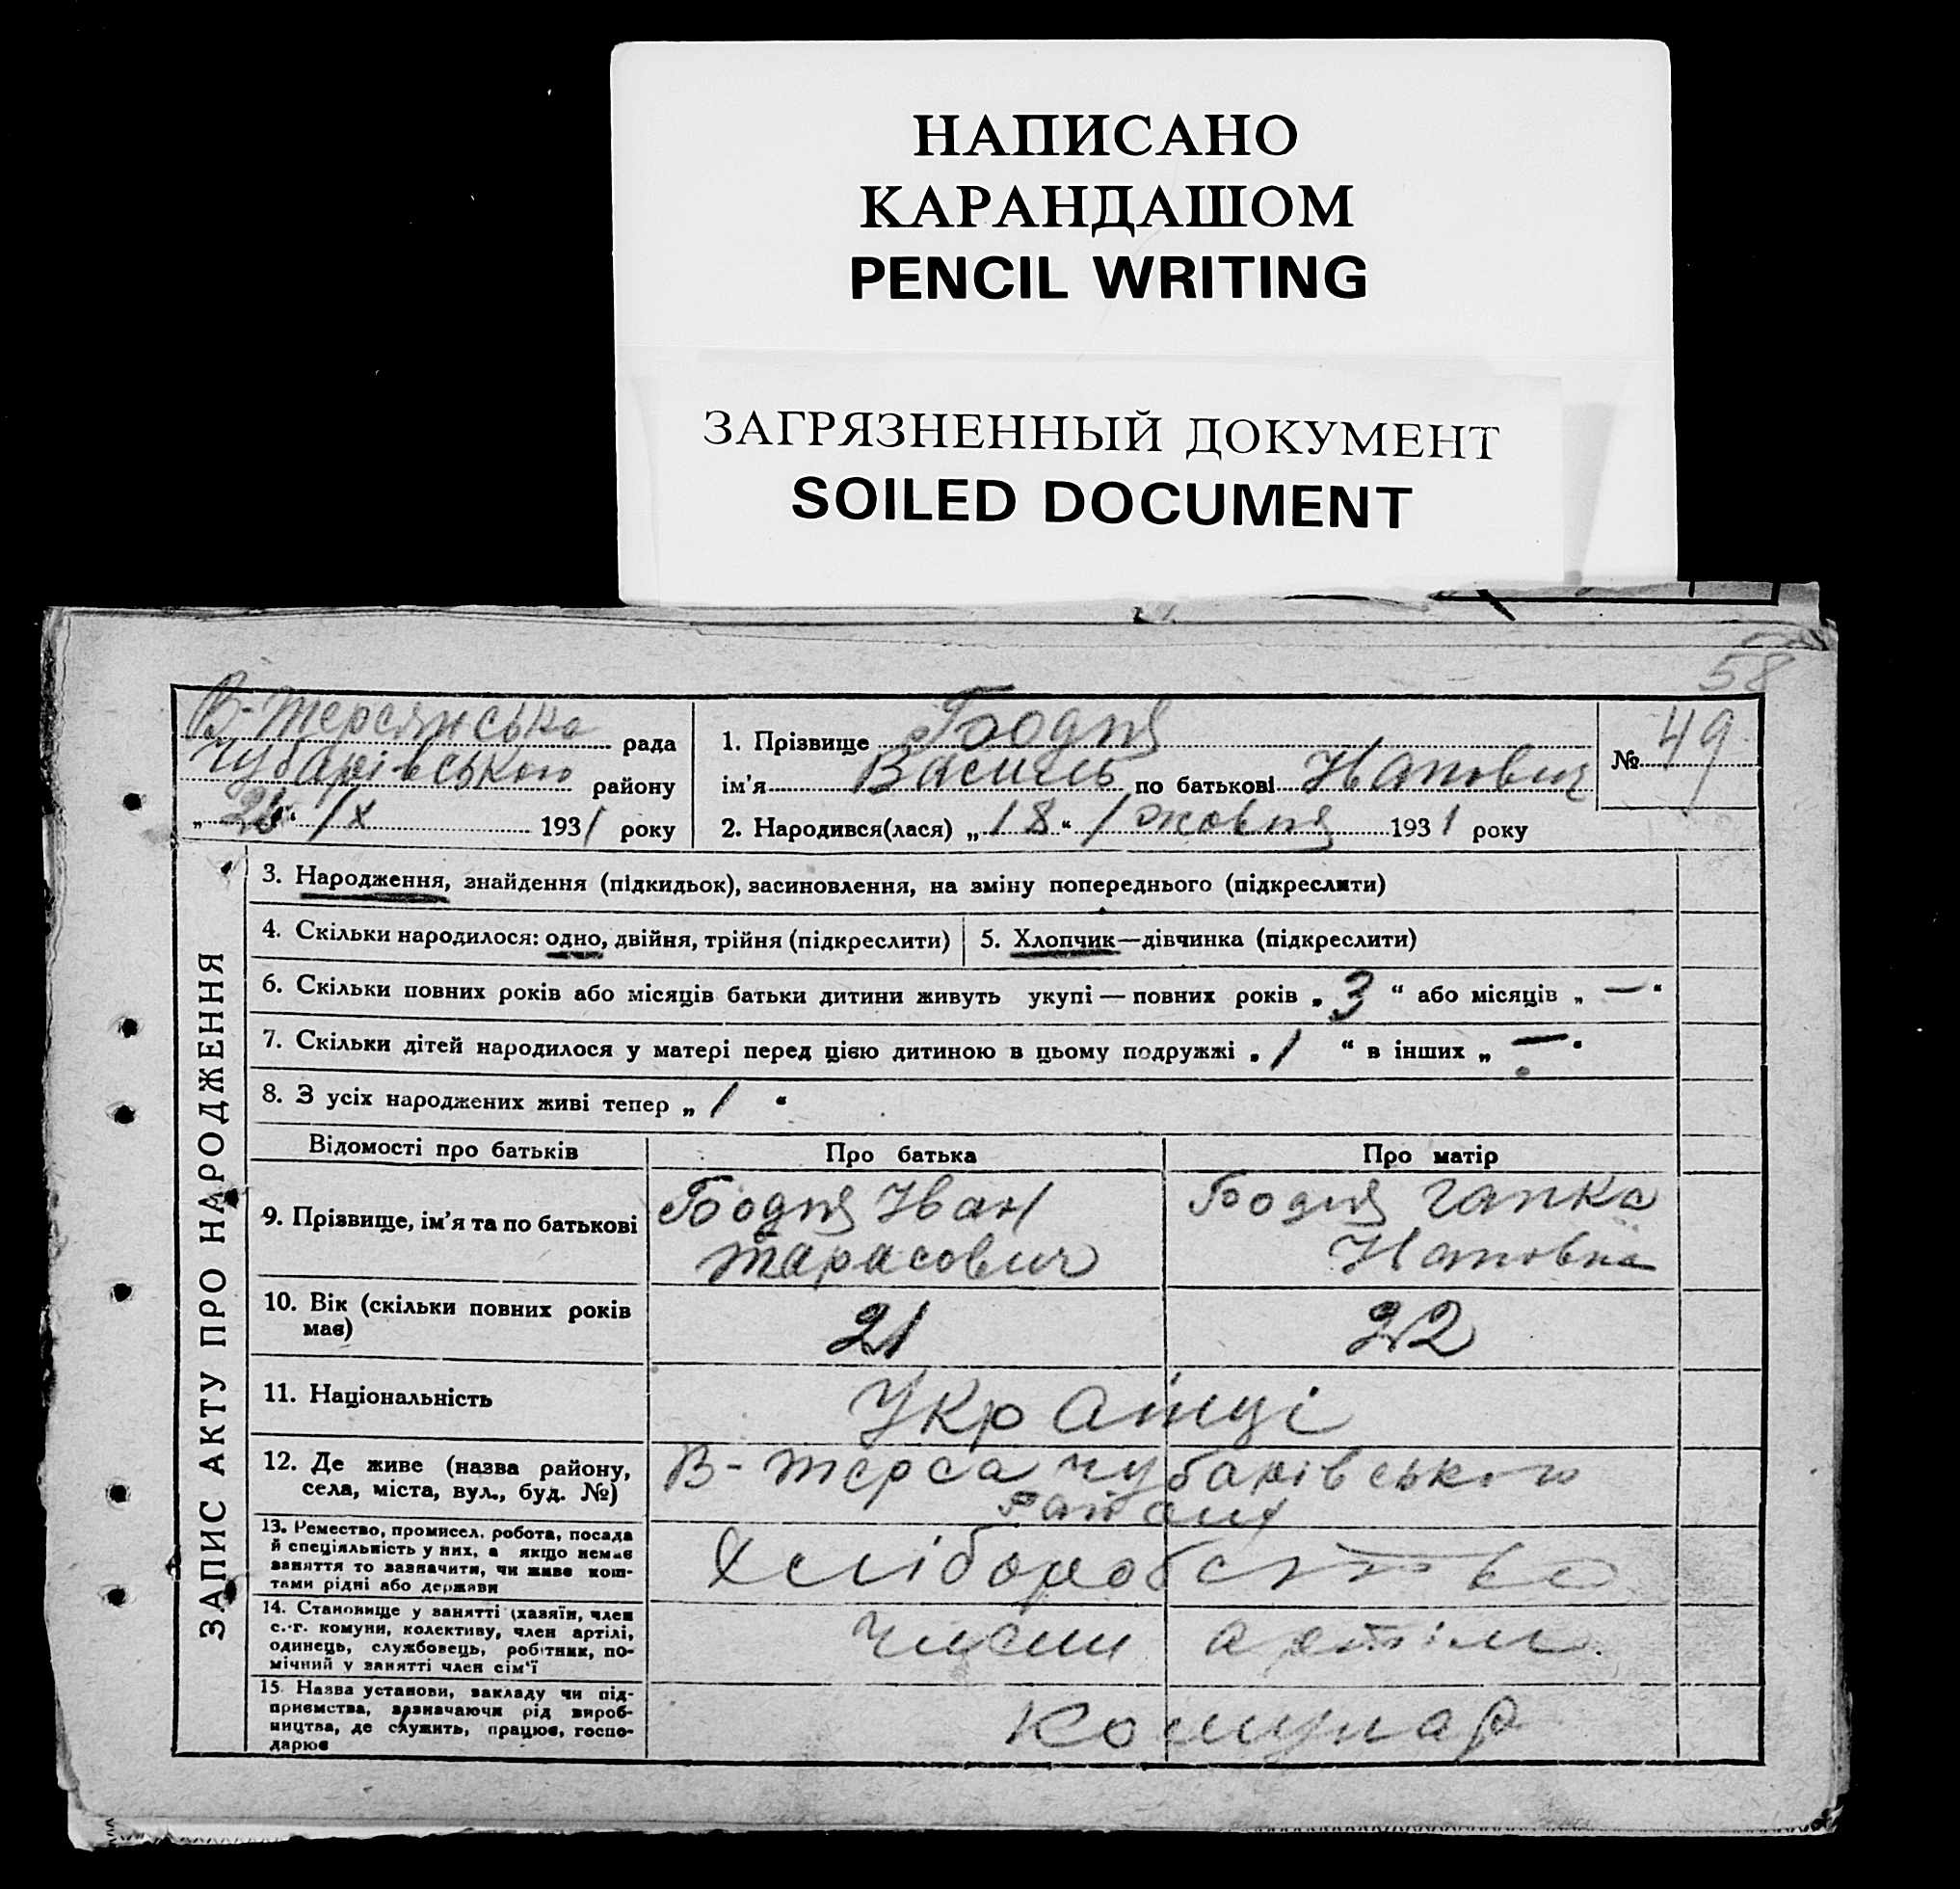 НАПИСАНО
КАРАНДАШОМ
PENCIL WRITING
ЗАГРЯЗНЕННЫЙ ДОКУМЕНТ
SOILED DOCUMENT
58
В-Терсянська рада
Чубарівського району
„26“ /X 1931 року
1. Прізвище Бодня
ім'я Василь по батькові Іванович
2. Народився(лася) „18“ / жовтня 1931 року
№ 49
ЗАПИС АКТУ ПРО НАРОДЖЕННЯ
3. Народження, знайдення (підкидьок), засиновлення, на зміну попереднього (підкреслити)
4. Скільки народилося: одно, двійня, трійня (підкреслити)
5. Хлопчик—дівчинка (підкреслити)
6. Скільки повних років або місяців батьки дитини живуть укупі — повних років „3“ або місяців „—“
7. Скільки дітей народилося у матері перед цією дитиною в цьому подружжі „1“ в інших „—“
8. З усіх народжених живі тепер „1“
Відомості про батьків
Про батька
Про матір
9. Прізвище, ім'я та по батькові
Бодня Іван
Тарасович
Бодня Гапка
10. Вік (скільки повних років
має)
21
22
11. Національність
Українці
12. Де живе (назва району,
села, міста, вул., буд. №)
В-Терса Чубарівського
району
13. Ремество, промисел, робота, посада
й спеціяльність у них, а якщо немає
заняття то зазначити, чи живе кош-
тами рідні або держави
Хліборобство
14. Становище у занятті (хазяїн, член
с.-г. комуни, колективу, член артілі,
одинець, службовець, робітник, по-
мічний у занятті член сім'ї
Члени артілі
15. Назва установи, закладу чи під-
приємства, зазначаючи рід вироб-
ництва, де служить, працює, госпо-
дарює
Комунар